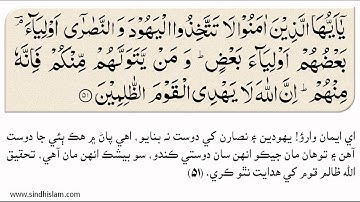 يَٰٓاَيُّهَا الَّذِيۡنَ اٰمَنُوۡا لَا تَتَّخِذُوا الۡيَهُوۡدَ وَ النَّصٰرٰۤى اَوۡلِيَآءَ ۘؔ
بَعۡضُهُمۡ اَوۡلِيَآءُ بَعۡضٍ‌ؕ وَ مَنۡ يَّتَوَلَّهُمۡ مِّنۡكُمۡ فَاِنَّهٗ
مِنۡهُمۡ‌ؕ اِنَّ اللّٰهَ لَا يَهۡدِى الۡقَوۡمَ الظّٰلِمِيۡنَ ﴿۵۱﴾
اي ايمان وارؤ! يهودين ۽ نصارن کي دوست نہ بنايو، اهي پاڻ ۾ هڪ ٻئي جا دوست
آهن ۽ توهان مان جيڪو انهن سان دوستي ڪندو، سو بيشڪ انهن مان آهي، تحقيق
الله ظالم قوم کي هدايت نٿو ڪري. (۵۱)
www.sindhislam.com